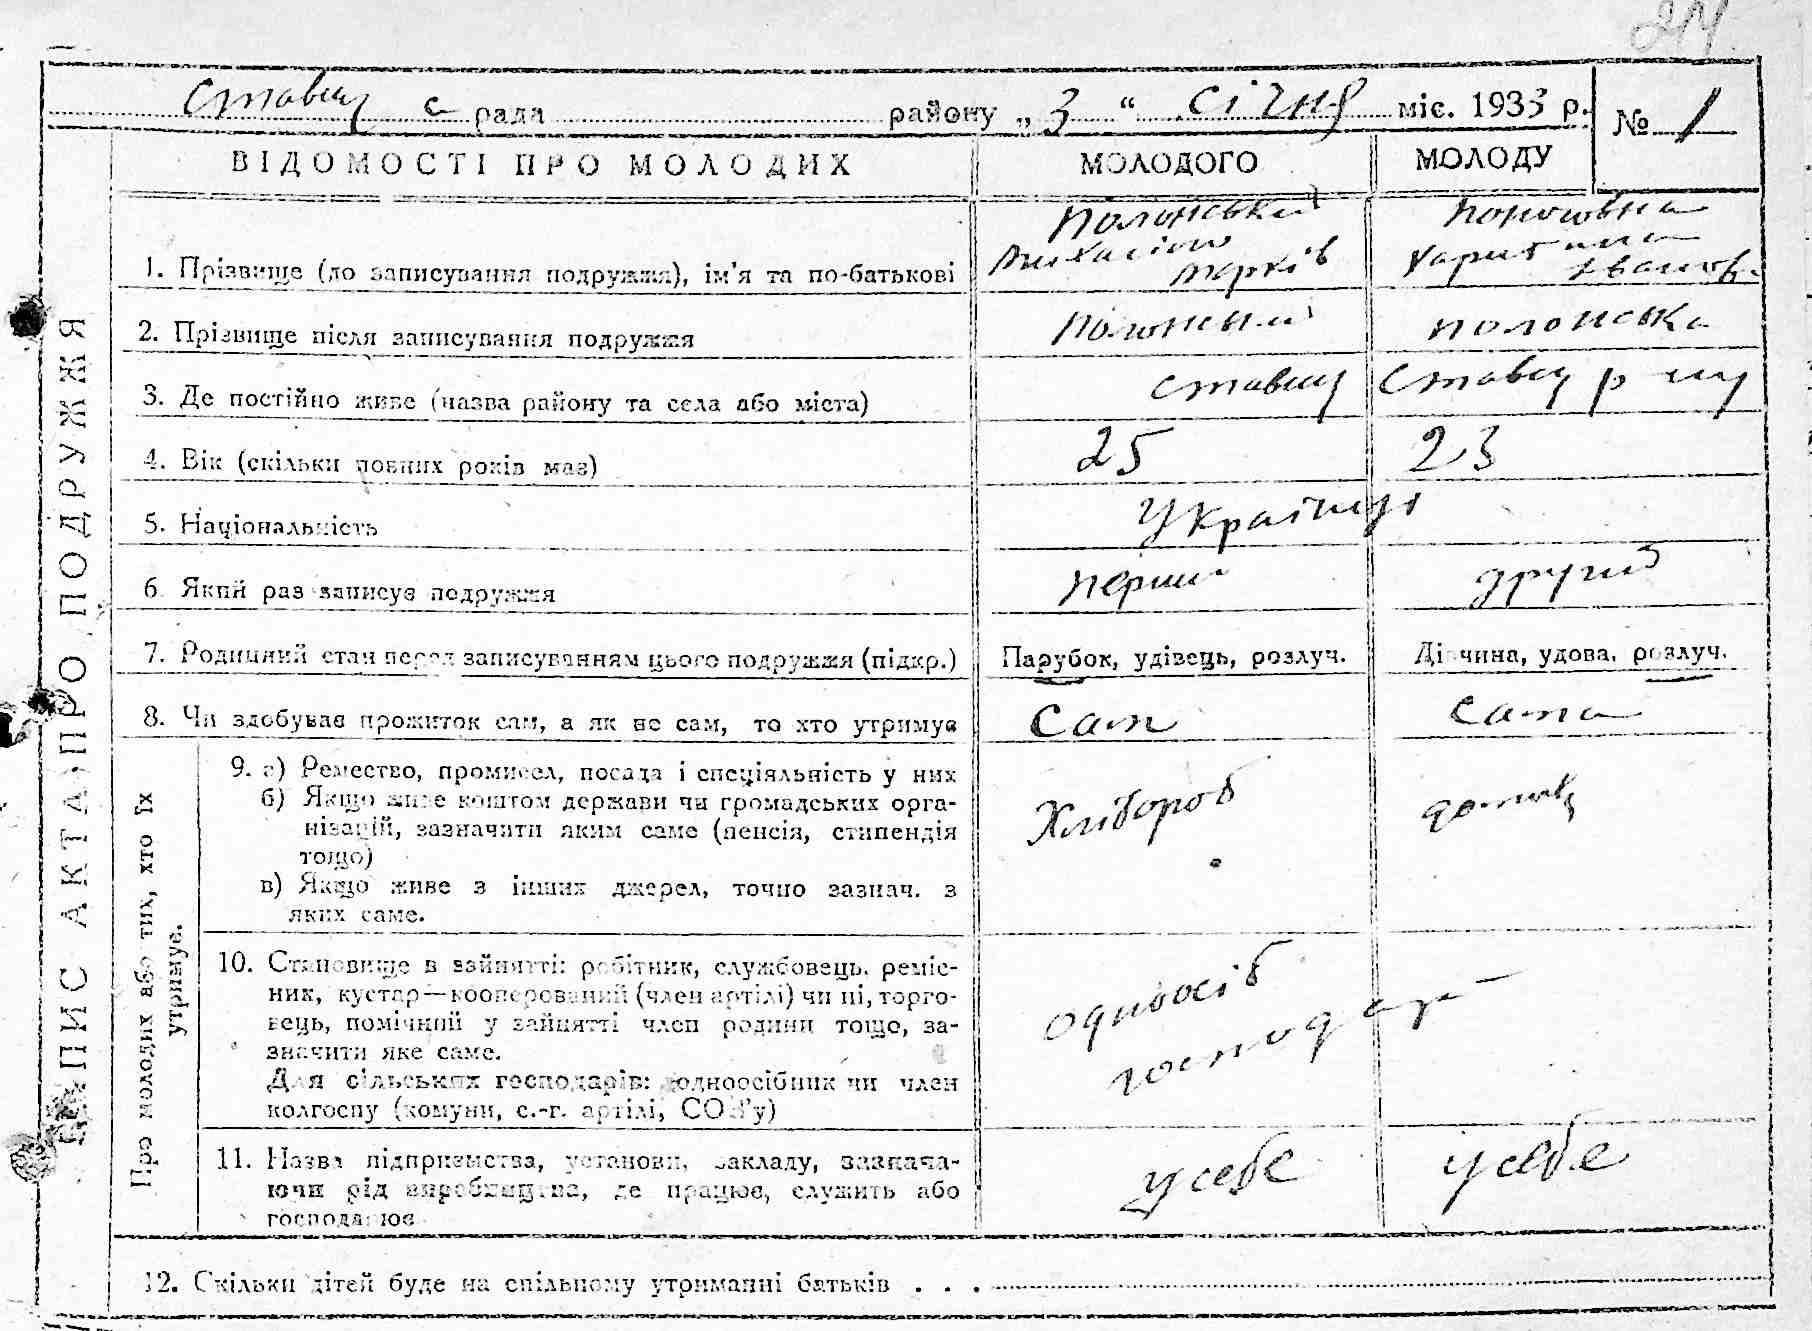 24
Ставищ с рада району „ 3 “ січня міс. 1933 р.
№ 1
ВІДОМОСТІ ПРО МОЛОДИХ МОЛОДОГО МОЛОДУ
1. Прізвище (до записування подружжя), ім'я та по-батькові Полонський Марків
2. Прізвище після записування подружжя Полонський Полонська
3. Де постійно живе (назва району та села або міста) Ставищ Ставищ р
4. Вік (скільки повних років має) 25 23
5. Національність Українці
6. Який раз записує подружжя перший другий
7. Родинний стан перед записуванням цього подружжя (підкр.) Парубок, удівець, розлуч. Дівчина, удова, розлуч.
8. Чи здобуває прожиток сам, а як не сам, то хто утримує Сам Сама
9. а) Ремество, промисел, посада і спеціяльність у них
б) Якщо живе коштом держави чи громадських орга-
нізацій, зазначити яким саме (пенсія, стипендія
тощо)
в) Якщо живе з інших джерел, точно зазнач. з
яких саме.
Хлібороб
10. Становище в зайнятті: робітник, службовець, реміс-
ник, кустар—кооперований (член артілі) чи ні, торго-
вець, помічний у зайнятті член родини тощо, за-
значити яке саме.
Для сільських господарів: одноосібник чи член
колгоспу (комуни, с.-г. артілі, СОЗ'у)
одноосіб
господар
11. Назва підприємства, установи, закладу, зазнача-
ючи рід виробництва, де працює, служить або
господарює
у себе у себе
12. Скільки дітей буде на спільному утриманні батьків . . .
ЗАПИС АКТА ПРО ПОДРУЖЖЯ
Про молодих або тих, хто їх
утримує.